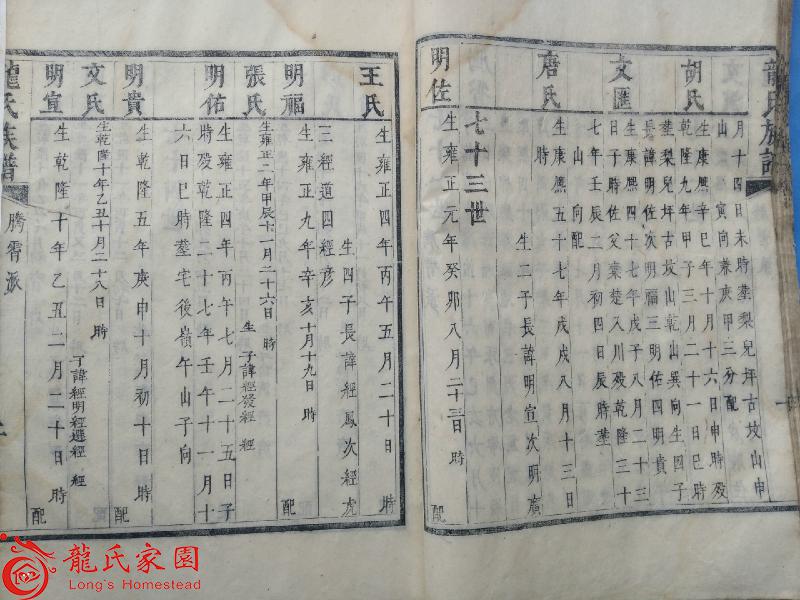 龍氏族譜
月十四日未時塟梨兒坪古坟山申
山寅向兼庚甲三分 配
胡氏 生康熙辛巳年十月十六日申時殁
乾隆九年甲子三月二十一日巳時
塟梨兒坪古坟山乾山巽向生四子
長諱明佐次明福三明佑四明貴
文匯 生康熙四十七年戊子八月二十三
日子時佐父棄楚入川殁乾隆三十
七年壬辰二月初四日辰時塟
山 向 配
唐氏 生康熙五十七年戊戌八月十三日
時 生二子長諱明宣次明
七十三世
明佐 生雍正元年癸卯八月二十三日 時 配
王氏 生雍正四年丙午五月二十日 時
生四子長諱經鳳次經虎
三經道四經彥
明福 生雍正九年辛亥十月十九日 時 配
張氏 生雍正二年甲辰十一月二十六日 時 生 子諱經發經 經
明佑 生雍正四年丙午七月二十五日子
時殁乾隆二十七年壬午十一月十
六日巳時塟宅後嶺午山子向 配
明貴 生乾隆五年庚申十月初十日 時 配
文氏 生乾隆十年乙丑十月二十八日 時 子諱經明經選經 經
明宣 生乾隆十年乙丑二月二十日 時 配
龍氏族譜 騰霄派
龍氏家園
Long's Homestead